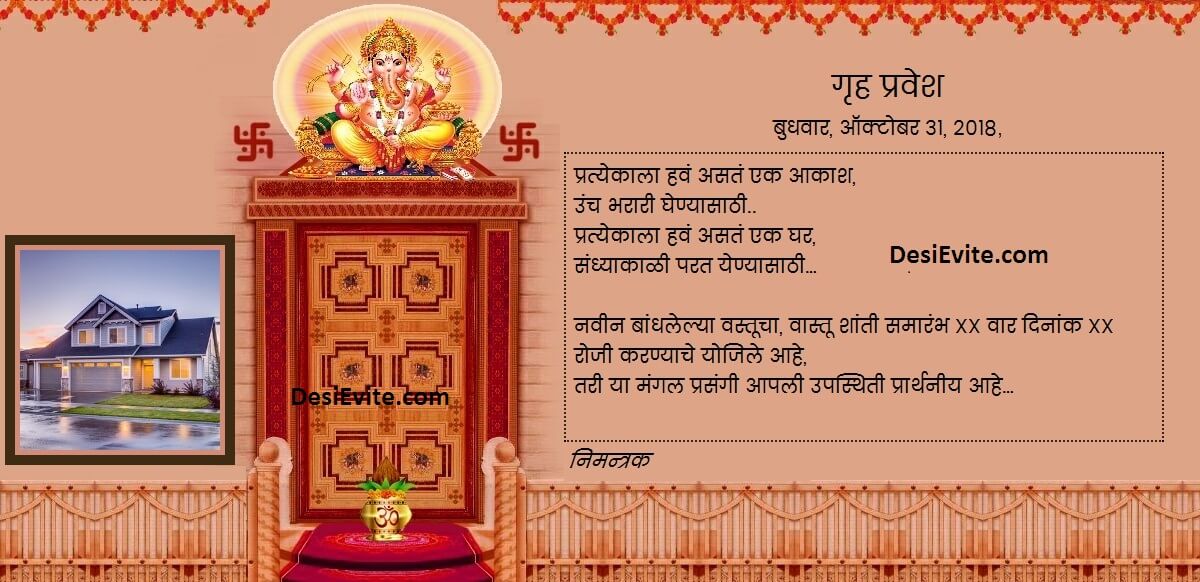 गृह प्रवेश
बुधवार, ऑक्टोबर 31, 2018,
प्रत्येकाला हवं असतं एक आकाश,
उंच भरारी घेण्यासाठी..
प्रत्येकाला हवं असतं एक घर,
संध्याकाळी परत येण्यासाठी...
DesiEvite.com
नवीन बांधलेल्या वस्तूचा, वास्तू शांती समारंभ XX वार दिनांक XX
रोजी करण्याचे योजिले आहे,
तरी या मंगल प्रसंगी आपली उपस्थिती प्रार्थनीय आहे...
DesiEvite.com
निमन्त्रक
ॐ